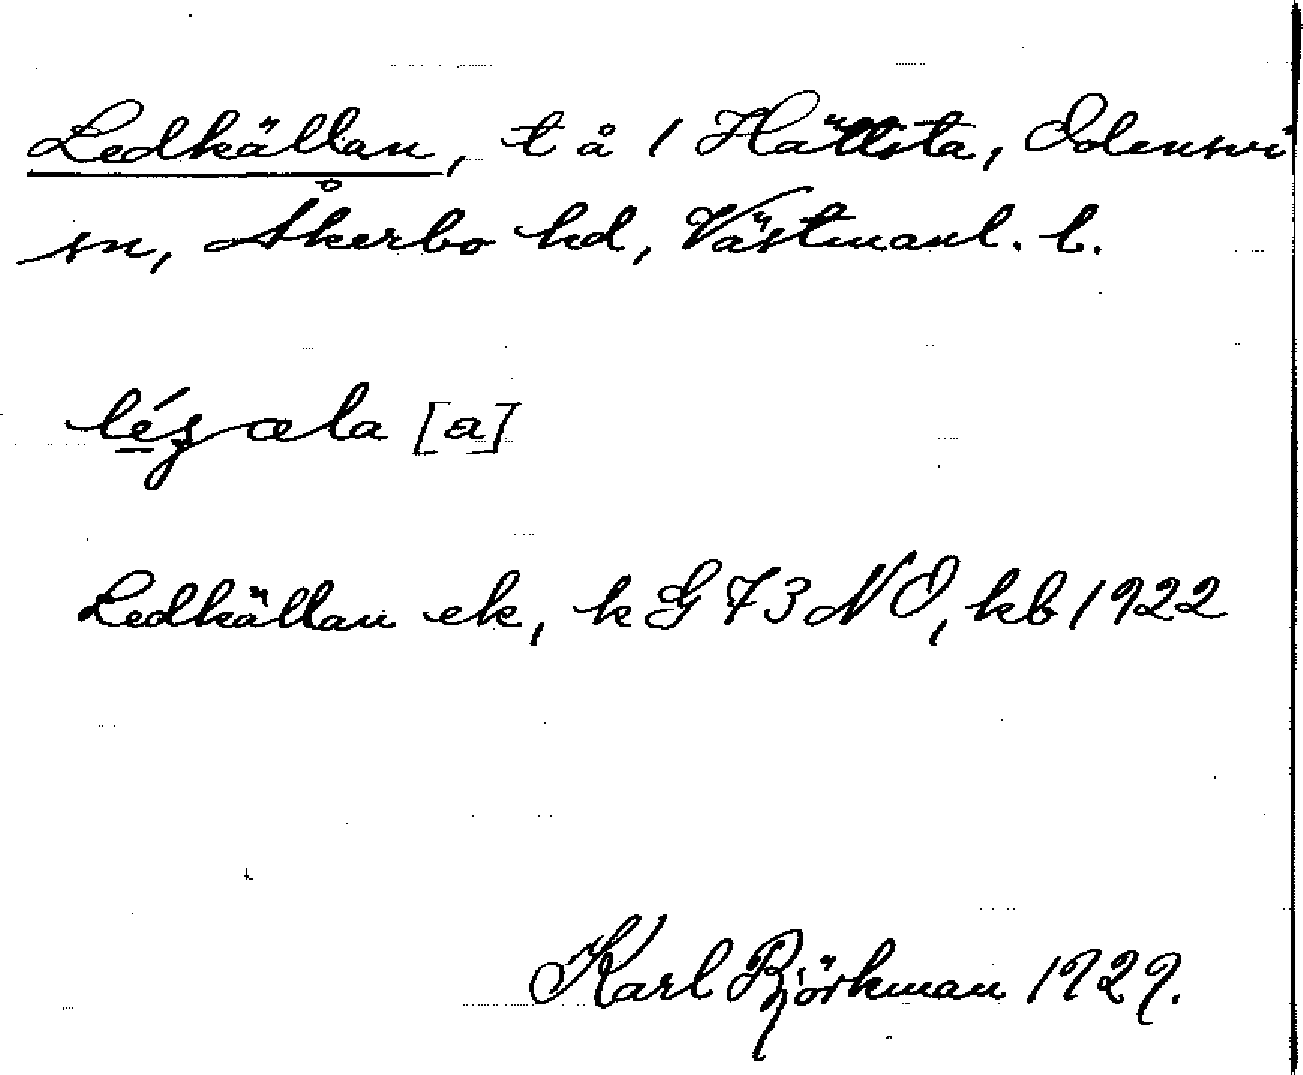 Ledkällan, t å 1 Hällsta, Odensvi
sn, Åkerbo hd, Västmanl. l.
[a]
Ledkällan ek, k G 73 NO, kb 1922
Karl Björkman 1929.